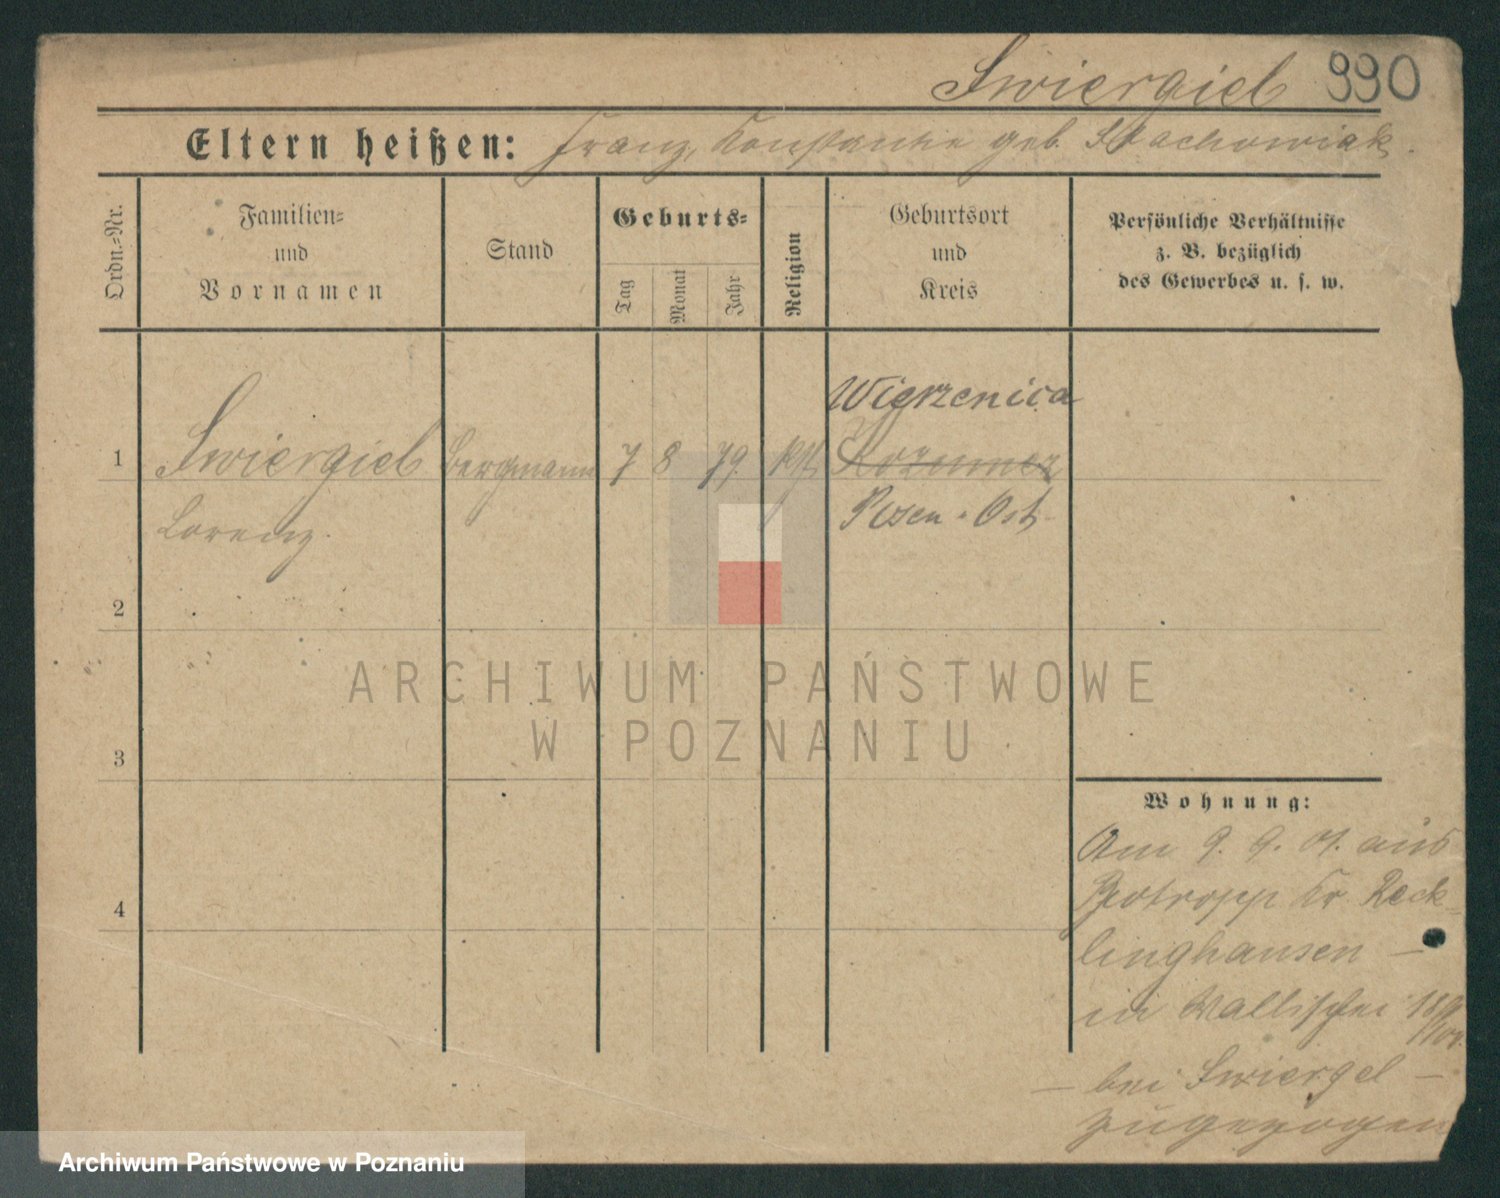 Swiergiel 990
Eltern heißen: Franz, Konstantie geb. Stachowiak.
Ordn.-Nr.
Familien-
und
Vornamen
Stand
Geburts-
Tag
Monat
Jahr
Religion
Geburtsort
und
Kreis
Persönliche Verhältnisse
z. B. bezüglich
des Gewerbes u. s. w.
Wierzenica
1 Swiergiel Bergmann 7 8 79 kth
Lorenz. Posen-Ost
2
3
4
ARCHIWUM PAŃSTWOWE
W POZNANIU
Wohnung:
Am 9. 9. 01. aus
Bottropp Kr. Reck-
linghausen —
in Wallischei
— bei Swiergel —
zugezogen
Archiwum Państwowe w Poznaniu